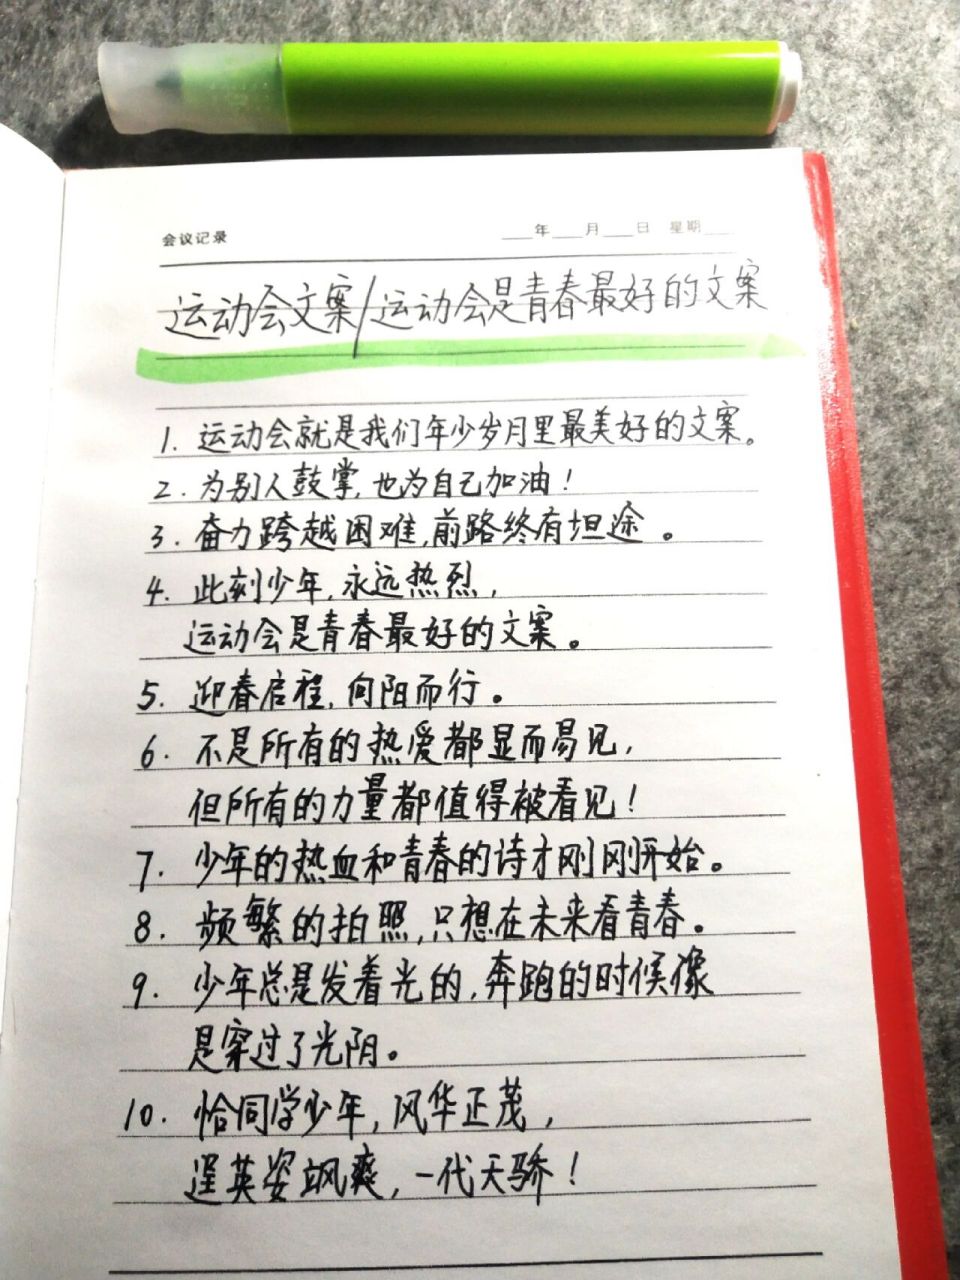 会议记录
___年___月___日 星期___
运动会文案/运动会是青春最好的文案
1. 运动会就是我们年少岁月里最美好的文案。
2. 为别人鼓掌,也为自己加油!
3. 奋力跨越困难,前路终有坦途。
4. 此刻少年,永远热烈,
运动会是青春最好的文案。
5. 迎春启程,向阳而行。
6. 不是所有的热爱都显而易见,
但所有的力量都值得被看见!
7. 少年的热血和青春的诗才刚刚开始。
8. 频繁的拍照,只想在未来看青春。
9. 少年总是发着光的,奔跑的时候像
是穿过了光阴。
10. 恰同学少年,风华正茂,
逞英姿飒爽,一代天骄!